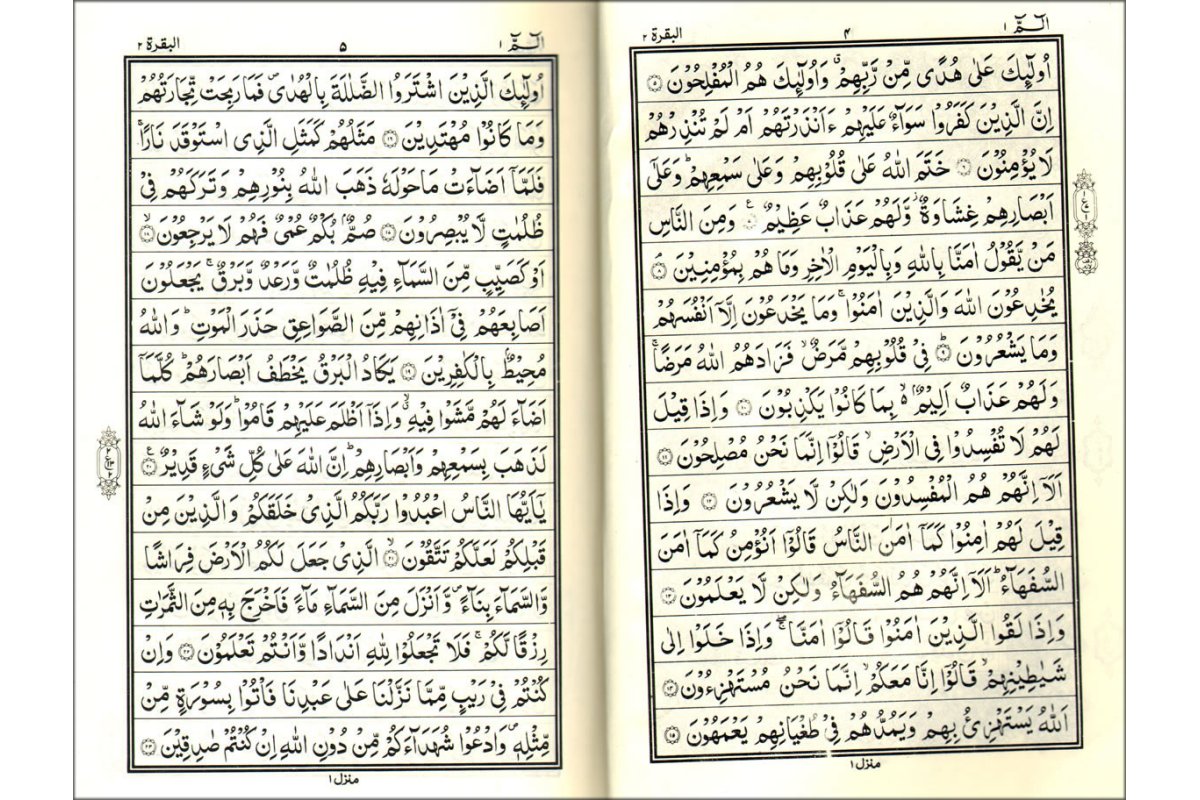 الٓمّٓ ١ ۴ البقرة ٢
اُولٰٓئِكَ عَلٰى هُدًى مِّنْ رَّبِّهِمْ ۗ وَاُولٰٓئِكَ هُمُ الْمُفْلِحُوْنَ ۵
اِنَّ الَّذِيْنَ كَفَرُوْا سَوَآءٌ عَلَيْهِمْ ءَاَنْذَرْتَهُمْ اَمْ لَمْ تُنْذِرْهُمْ
لَا يُؤْمِنُوْنَ ۶ خَتَمَ اللّٰهُ عَلٰى قُلُوْبِهِمْ وَعَلٰى سَمْعِهِمْ ؕ وَعَلٰٓى
اَبْصَارِهِمْ غِشَاوَةٌ ؗ وَّلَهُمْ عَذَابٌ عَظِيْمٌ ۷ وَمِنَ النَّاسِ
مَنْ يَّقُوْلُ اٰمَنَّا بِاللّٰهِ وَبِالْيَوْمِ الْاٰخِرِ وَمَا هُمْ بِمُؤْمِنِيْنَ ۸
يُخٰدِعُوْنَ اللّٰهَ وَالَّذِيْنَ اٰمَنُوْا ۚ وَمَا يَخْدَعُوْنَ اِلَّاۤ اَنْفُسَهُمْ
وَمَا يَشْعُرُوْنَ ۹ فِيْ قُلُوْبِهِمْ مَّرَضٌ ۙ فَزَادَهُمُ اللّٰهُ مَرَضًا ۚ
وَلَهُمْ عَذَابٌ اَلِيْمٌۢ ۙ بِمَا كَانُوْا يَكْذِبُوْنَ ۱۰ وَاِذَا قِيْلَ
لَهُمْ لَا تُفْسِدُوْا فِي الْاَرْضِ ۙ قَالُوْٓا اِنَّمَا نَحْنُ مُصْلِحُوْنَ ۱۱
اَلَآ اِنَّهُمْ هُمُ الْمُفْسِدُوْنَ وَلٰكِنْ لَّا يَشْعُرُوْنَ ۱۲ وَاِذَا
قِيْلَ لَهُمْ اٰمِنُوْا كَمَآ اٰمَنَ النَّاسُ قَالُوْٓا اَنُؤْمِنُ كَمَآ اٰمَنَ
السُّفَهَآءُ ؕ اَلَآ اِنَّهُمْ هُمُ السُّفَهَآءُ وَلٰكِنْ لَّا يَعْلَمُوْنَ ۱۳
وَاِذَا لَقُوا الَّذِيْنَ اٰمَنُوْا قَالُوْٓا اٰمَنَّا ۖۚ وَاِذَا خَلَوْا اِلٰى
شَيٰطِيْنِهِمْ ۙ قَالُوْٓا اِنَّا مَعَكُمْ ۙ اِنَّمَا نَحْنُ مُسْتَهْزِءُوْنَ ۱۴
اَللّٰهُ يَسْتَهْزِئُ بِهِمْ وَيَمُدُّهُمْ فِيْ طُغْيَانِهِمْ يَعْمَهُوْنَ ۱۵
منزل ١
الٓمّٓ ١ ۵ البقرة ٢
اُولٰٓئِكَ الَّذِيْنَ اشْتَرَوُا الضَّلٰلَةَ بِالْهُدٰى ۪ فَمَا رَبِحَتْ تِّجَارَتُهُمْ
وَمَا كَانُوْا مُهْتَدِيْنَ ۱۶ مَثَلُهُمْ كَمَثَلِ الَّذِي اسْتَوْقَدَ نَارًا ۚ
فَلَمَّآ اَضَآءَتْ مَا حَوْلَهٗ ذَهَبَ اللّٰهُ بِنُوْرِهِمْ وَتَرَكَهُمْ فِيْ
ظُلُمٰتٍ لَّا يُبْصِرُوْنَ ۱۷ صُمٌّۢ بُكْمٌ عُمْيٌ فَهُمْ لَا يَرْجِعُوْنَ ۙ ۱۸
اَوْ كَصَيِّبٍ مِّنَ السَّمَآءِ فِيْهِ ظُلُمٰتٌ وَّرَعْدٌ وَّبَرْقٌ ۚ يَجْعَلُوْنَ
اَصَابِعَهُمْ فِيْٓ اٰذَانِهِمْ مِّنَ الصَّوَاعِقِ حَذَرَ الْمَوْتِ ؕ وَاللّٰهُ
مُحِيْطٌۢ بِالْكٰفِرِيْنَ ۱۹ يَكَادُ الْبَرْقُ يَخْطَفُ اَبْصَارَهُمْ ؕ كُلَّمَآ
اَضَآءَ لَهُمْ مَّشَوْا فِيْهِ ۙ وَاِذَآ اَظْلَمَ عَلَيْهِمْ قَامُوْا ؕ وَلَوْ شَآءَ اللّٰهُ
لَذَهَبَ بِسَمْعِهِمْ وَاَبْصَارِهِمْ ؕ اِنَّ اللّٰهَ عَلٰى كُلِّ شَيْءٍ قَدِيْرٌ ۲۰
يٰٓاَيُّهَا النَّاسُ اعْبُدُوْا رَبَّكُمُ الَّذِيْ خَلَقَكُمْ وَالَّذِيْنَ مِنْ
قَبْلِكُمْ لَعَلَّكُمْ تَتَّقُوْنَ ۙ ۲۱ الَّذِيْ جَعَلَ لَكُمُ الْاَرْضَ فِرَاشًا
وَّالسَّمَآءَ بِنَآءً ۪ وَّاَنْزَلَ مِنَ السَّمَآءِ مَآءً فَاَخْرَجَ بِهٖ مِنَ الثَّمَرٰتِ
رِزْقًا لَّكُمْ ۚ فَلَا تَجْعَلُوْا لِلّٰهِ اَنْدَادًا وَّاَنْتُمْ تَعْلَمُوْنَ ۲۲ وَاِنْ
كُنْتُمْ فِيْ رَيْبٍ مِّمَّا نَزَّلْنَا عَلٰى عَبْدِنَا فَاْتُوْا بِسُوْرَةٍ مِّنْ
مِّثْلِهٖ ۪ وَادْعُوْا شُهَدَآءَكُمْ مِّنْ دُوْنِ اللّٰهِ اِنْ كُنْتُمْ صٰدِقِيْنَ ۲۳
منزل ١